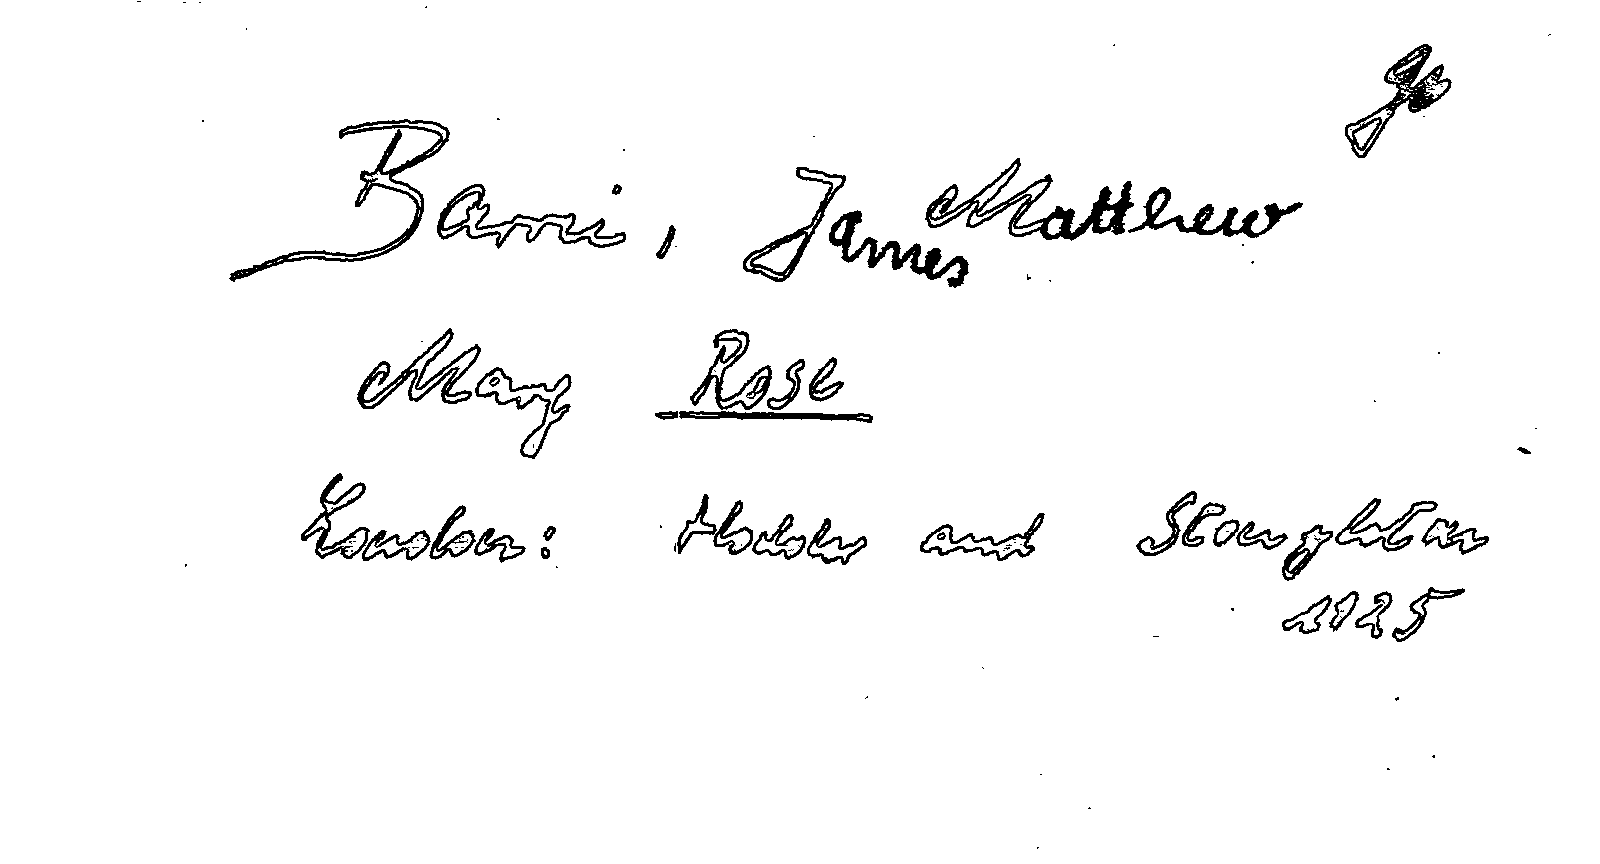 Barrie, James Matthew
Mary Rose
London: Hodder and Stoughton
1925